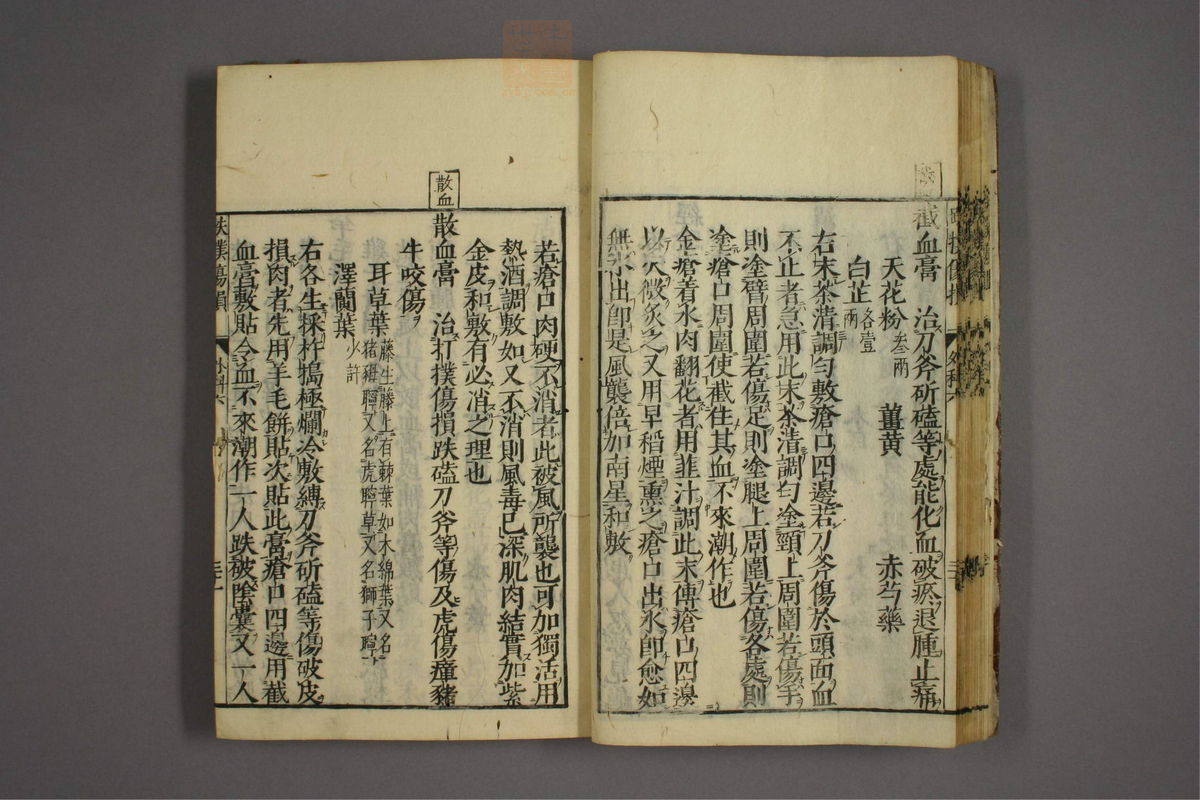 截血膏　治刀斧斫磕等處能化血破瘀退腫止痛
天花粉叁兩　薑黄　赤芍藥
白芷各壹兩
右末茶清調勻敷瘡口四邊若刀斧傷於頭面血
不止者急用此末茶清調勻塗頸上周圍若傷手
則塗臂周圍若傷足則塗腿上周圍若傷各處則
塗瘡口周圍使截住其血不來潮作也
金瘡着水肉翻花者用韭汁調此末傅瘡口四邊
以火微炙之又用早稻煙熏之瘡口出水卽愈如
無水出卽是風襲倍加南星和敷
若瘡口肉硬不消者此被風所襲也可加獨活用
熱酒調敷如又不消則風毒已深肌肉結實加紫
金皮和敷有必消之理也
散血
散血膏　治打撲傷損跌磕刀斧等傷及虎傷瘴猪
牛咬傷
耳草葉藤生藤上有蕀葉如木綿葉又名
猪𤘽聹又名虎聹草又名獅子聹
澤蘭葉少許
右各生採杵搗極爛冷敷縛刀斧斫磕等傷破皮
損肉者先用羊毛餅貼次貼此膏瘡口四邊用截
血膏敷貼令血不來潮作一人跌破陰囊又一人
跌撲傷損　外科六